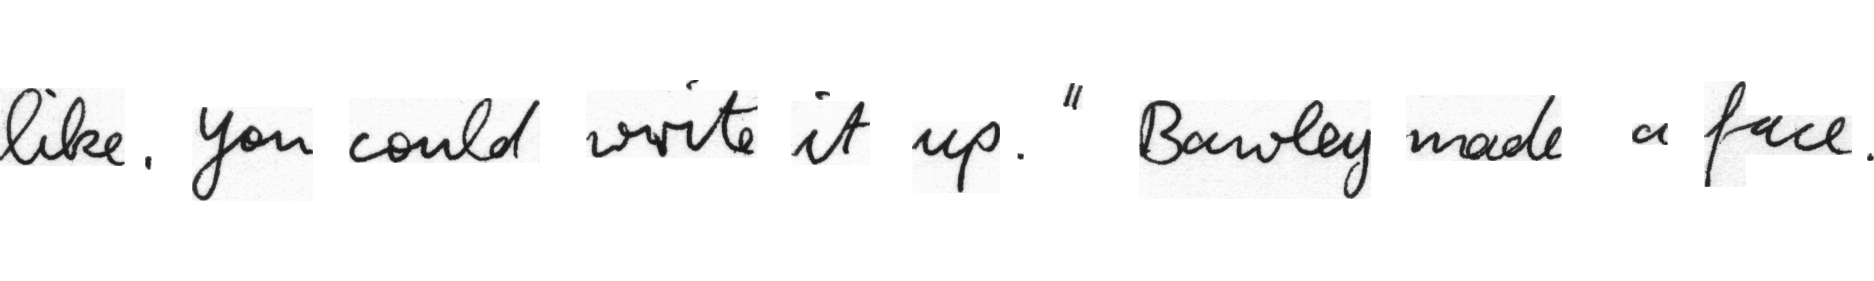 like. You could write it up." Bawley made a face.